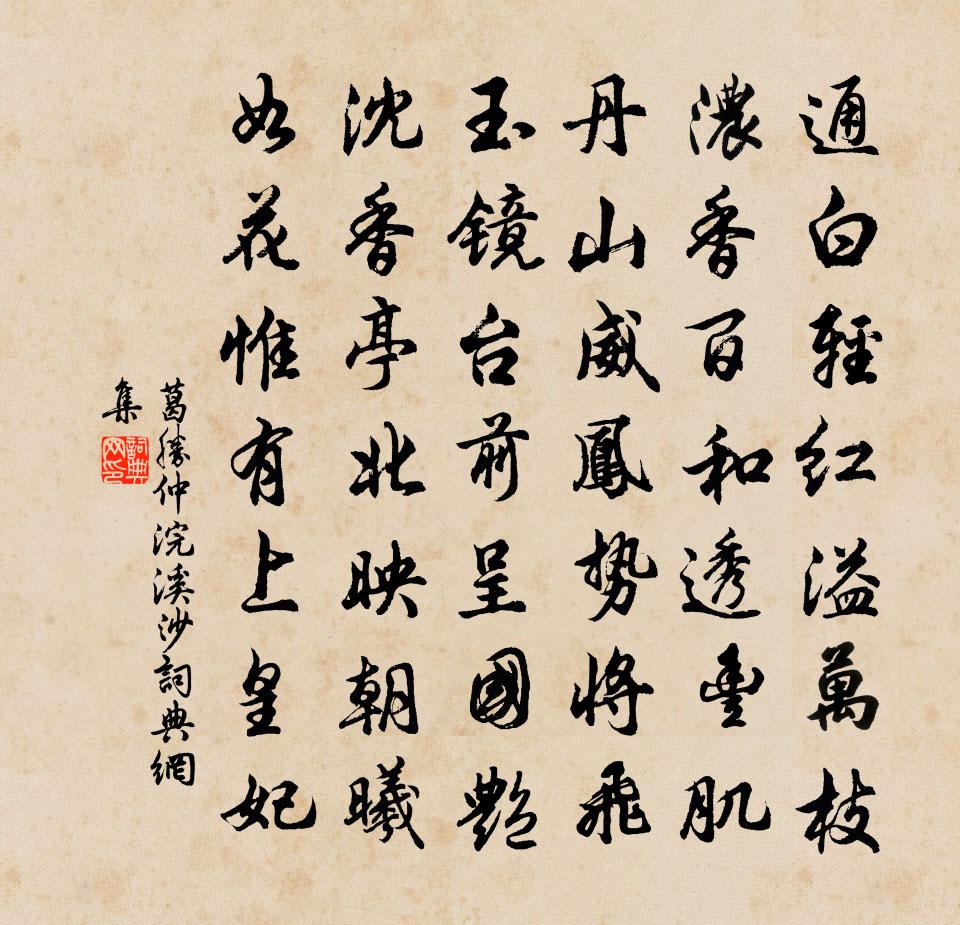 通白輕紅溢萬枝
濃香百和透豐肌
丹山威鳳勢將飛
玉鏡台前呈國艷
沈香亭北映朝曦
如花惟有上皇妃
葛勝仲浣溪沙詞典網
集
詞典網印